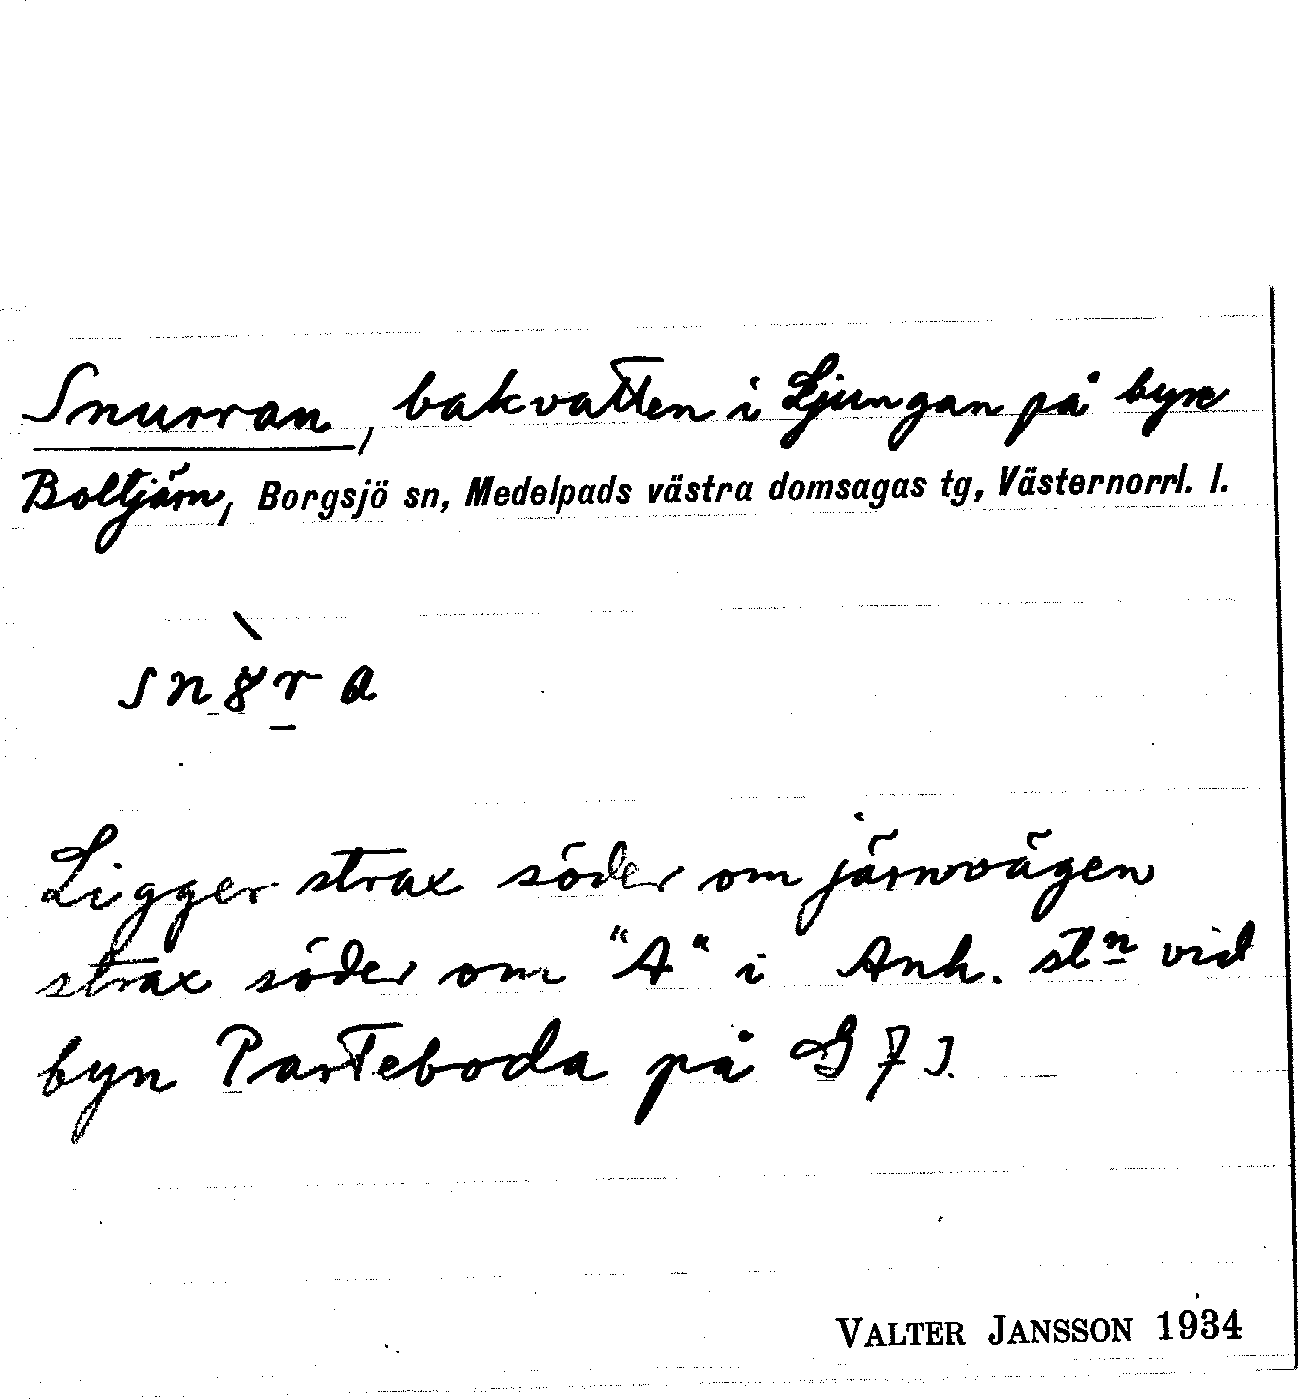 Snurran, bakvatten i Ljungan på byn
Boltjärn, Borgsjö sn, Medelpads västra domsagas tg, Västernorrl. l.
Ligger strax söder om järnvägen
strax söder om "A" i Anh. stn vid
byn Parteboda på G 7 J.
VALTER JANSSON 1934